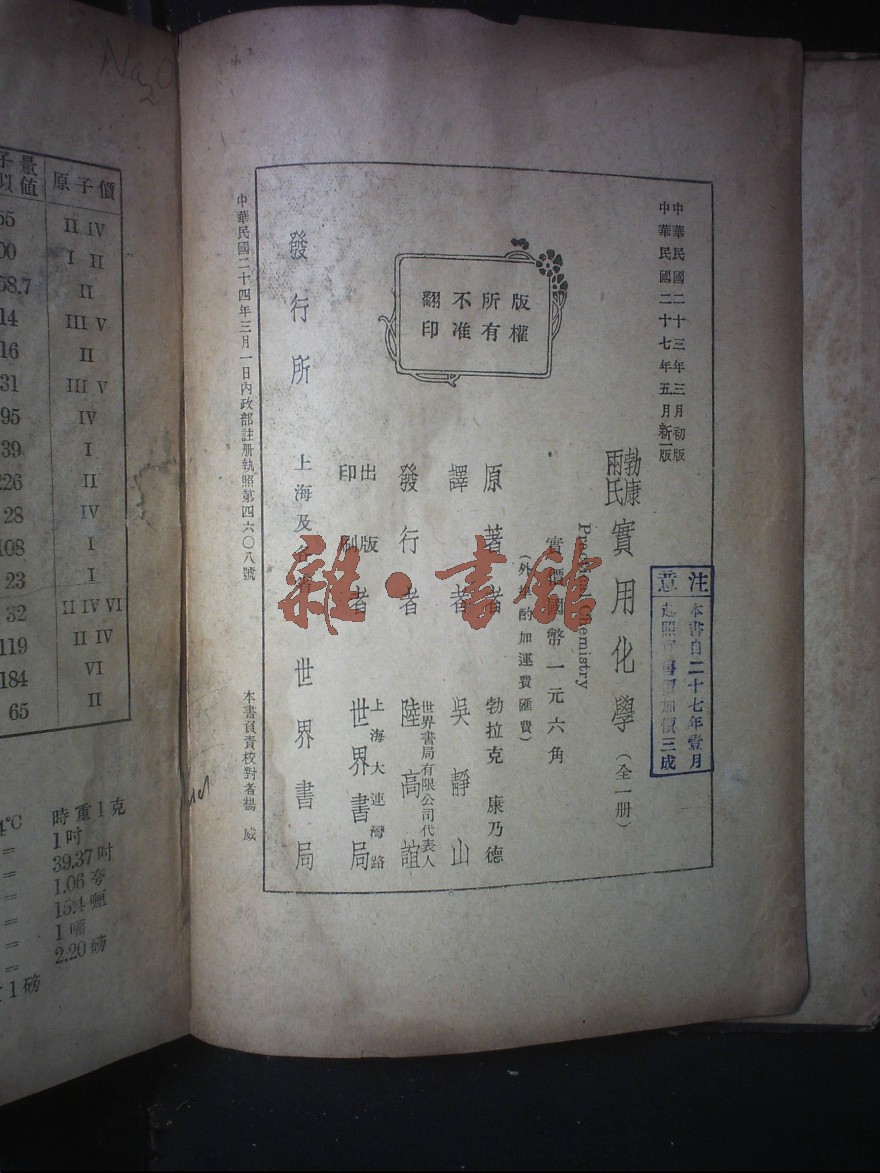 中華民國二十三年三月初版
中華民國二十七年五月新一版
注意
本書自二十七年壹月
加價三成
勃康兩氏實用化學(全一册)
Chemistry
實價國幣一元六角
(外埠酌加運費匯費)
原著者 勃拉克 康乃德
譯者 吳靜山
發行者 世界書局有限公司代表人 陸高誼
出版印刷者 上海大連灣路 世界書局
發行所 上海及各 世界書局
版權所有
不准翻印
中華民國二十四年三月一日內政部註册執照第四六〇八號
本書負責校對者楊威
雜·書館
Na2O
子量
以值
原子價
55 II IV
00 I II
58.7 II
14 III V
16 II
31 III V
95 IV
39 I
226 II
28 IV
108 I
23 I
32 II IV VI
119 II IV
184 VI
65 II
4°C 時重1克
= 1吋
= 39.37吋
= 1.06夸
= 15.4喱
= 1
= 2.20磅
1磅